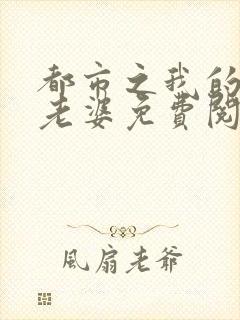 都市之我的
老婆免費閱
風扇老爺